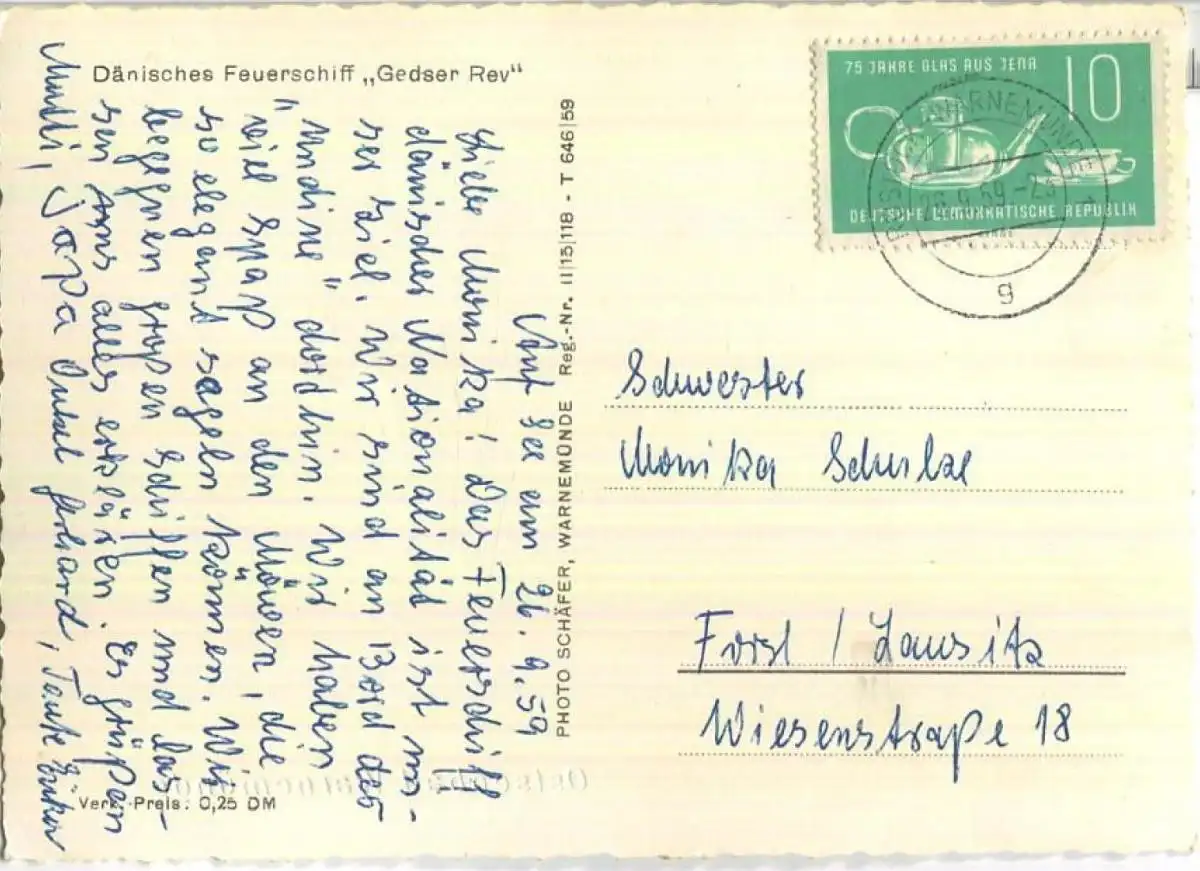 Dänisches Feuerschiff „Gedser Rev"
Auf See am 26.9.59
Liebe Monika! Das Feuerschiff
dänischer Nationalität ist un-
ser Ziel. Wir sind an Bord der
"Undine" dorthin. Wir haben
viel Spaß an den Möwen, die
so elegant segeln können. Wir
begegnen großen Schiffen und las-
sen uns alles erklären. Es grüßen
Mutti, Papa Onkel Gerhard, Tante Erika
Verk.-Preis: 0,25 DM
PHOTO SCHÄFER, WARNEMÜNDE Reg.-Nr. II|15|118 - T 646|59
75 JAHRE GLAS AUS JENA 10
DEUTSCHE DEMOKRATISCHE REPUBLIK
WARNEMÜNDE
26.9.59
g
Schwester
Monika Schulze
Forst / Lausitz
Wiesenstraße 18